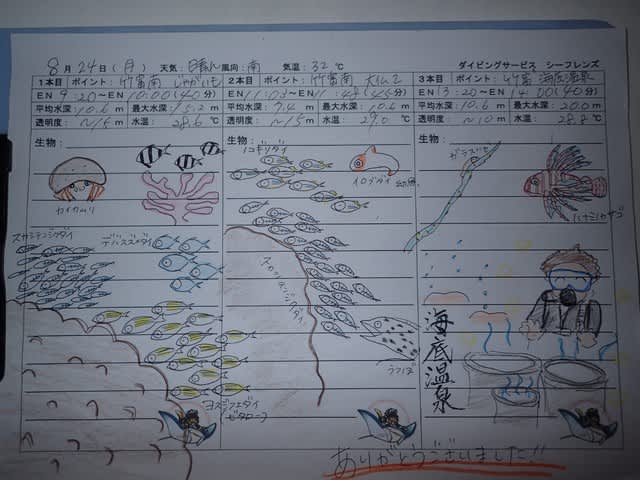 8月24日(月) 天気:晴れ 風向:南 気温:32℃ ダイビングサービス シーフレンズ
1本目 ポイント:竹富南 じゃがいも
EN 9:20~EN10:00(40分)
平均水深:10.6m 最大水深:15.2m
透明度:~15m 水温:28.6℃
生物:
カイカムリ
スカシテンジクダイ
デバスズメダイ
ヨスジフエダイ
2本目 ポイント:竹富南
平均水深:7.4m 最大水深:10.6m
透明度:~15m 水温:29.0℃
生物:
ノコギリダイ
イロブダイ
幼魚
スカシテンジクダイ
ウツボ
3本目 ポイント:竹富 海底温泉
EN13:20~EN14:00(40分)
平均水深:10.6m 最大水深:20.0m
透明度:~10m 水温:28.8℃
生物:
ガラスハゼ
ハナミノカサゴ
海底温泉
ありがとうございました!!